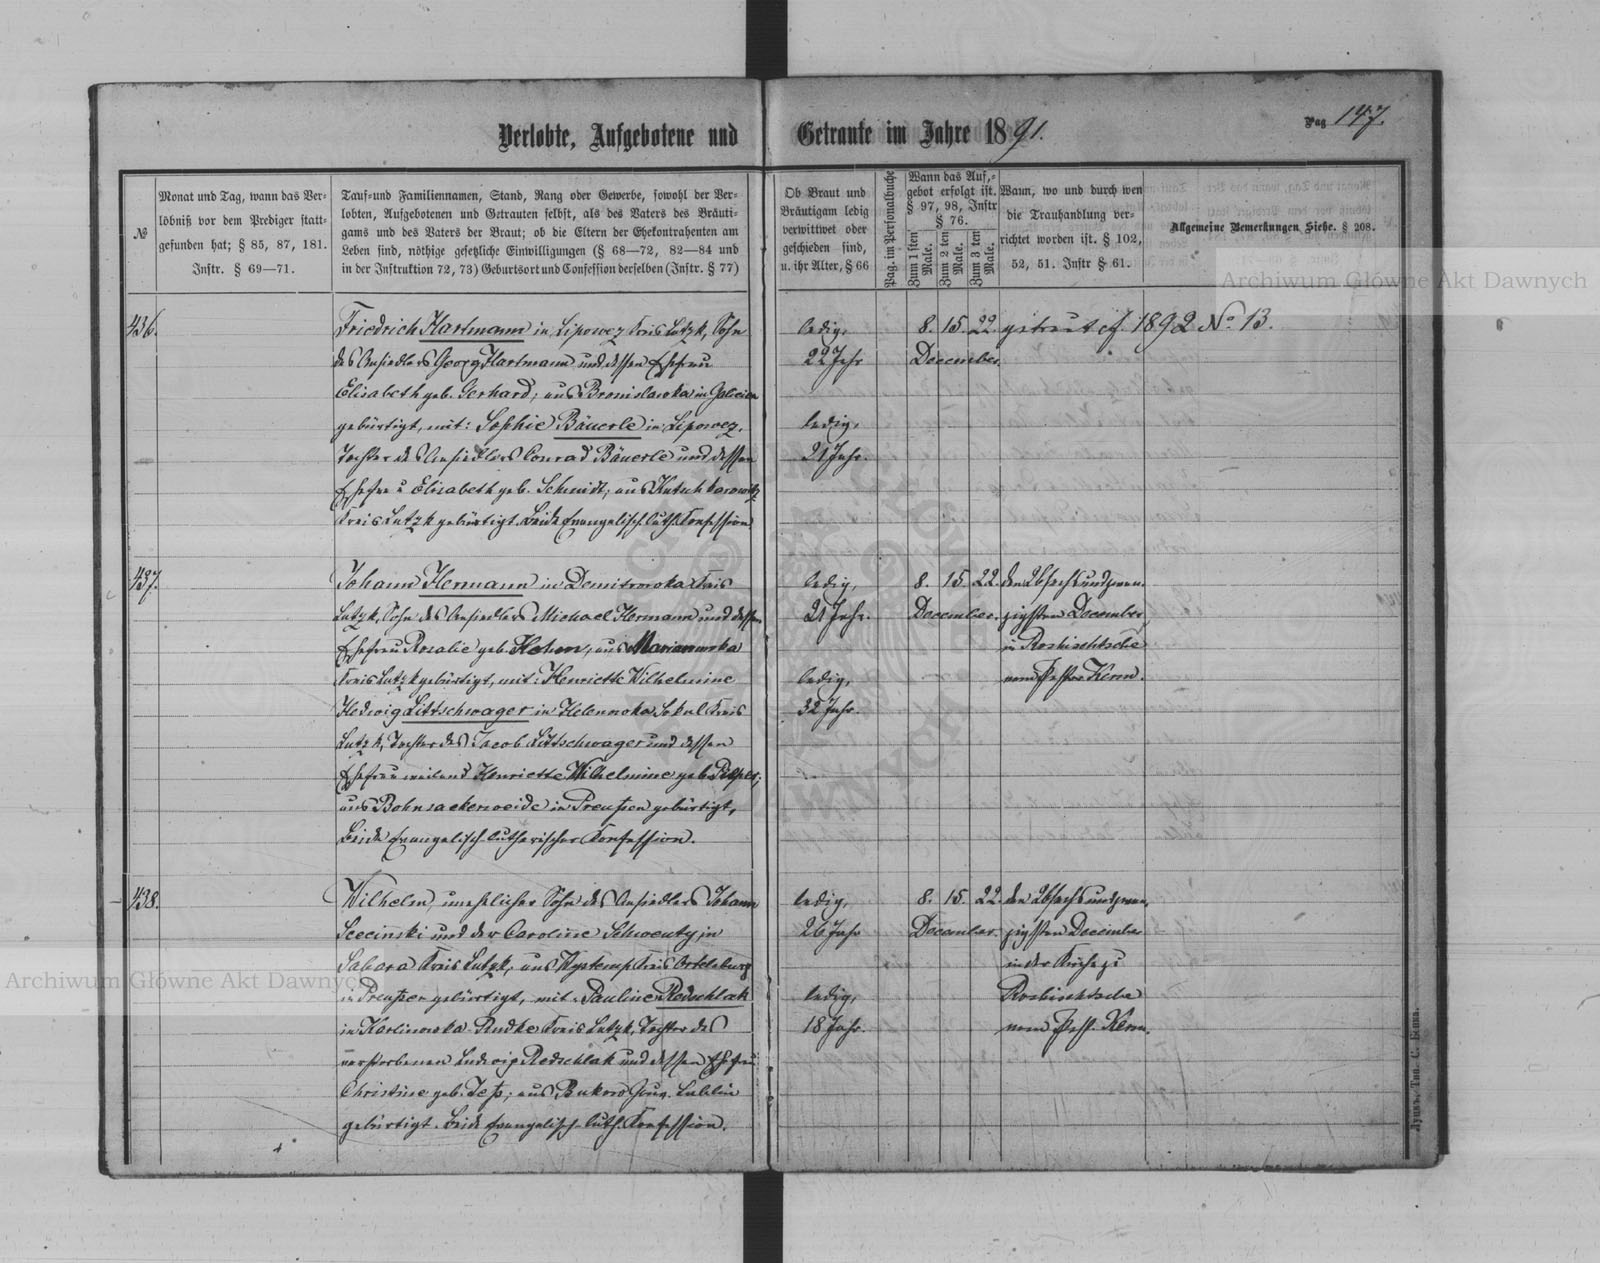 Pag 147.
Verlobte, Aufgebotene und Getraute im Jahre 1891.
№
Monat und Tag, wann das Ver-
löbniß vor dem Prediger statt-
gefunden hat; § 85, 87, 181.
Instr. § 69—71.
Tauf-und Familiennamen, Stand, Rang oder Gewerbe, sowohl der Ver-
lobten, Aufgebotenen und Getrauten selbst, als des Vaters des Bräuti-
gams und des Vaters der Braut; ob die Eltern der Ehekontrahenten am
Leben sind, nöthige gesetzliche Einwilligungen (§ 68—72, 82—84 und
in der Instruktion 72, 73) Geburtsort und Confession derselben (Instr. § 77)
Ob Braut und
Bräutigam ledig
verwittwet oder
geschieden sind,
u. ihr Alter, § 66
Pag. im Personalbuche
Wann das Auf-
gebot erfolgt ist.
§ 97, 98, Instr
§ 76.
Zum 1 sten Male.
Zum 2 ten Male.
Zum 3 ten Male.
Wann, wo und durch wen
die Trauhandlung ver-
richtet worden ist. § 102,
52, 51. Instr § 61.
Allgemeine Bemerkungen Siehe. § 208.
436.
Friedrich Hartmann in Lipowez Kreis Lutzk, Sohn
des Ansiedlers Georg Hartmann und dessen Ehefrau
Elisabeth geb. Gerhard; aus Bronislawka in Galicien
gebürtigt, mit: Sophie Bäuerle in Lipowez,
Tochter des Ansiedlers Conrad Bäuerle und dessen
Ehefrau Elisabeth geb. Schmidt; aus
Kreis Lutzk gebürtigt. Beide Evangelisch-luth. Konfession
ledig,
22 Jahr
ledig,
21 Jahr.
8. 15. 22.
December.
getraut cf. 1892 No. 13.
437.
Johann Hermann in Demitrowka Kreis
Lutzk, Sohn des Ansiedlers Michael Hermann und dessen
Ehefrau Rosalie geb. Hohm, aus Marianowka
Kreis Lutzk gebürtigt, mit: Henriette Wilhelmine
Hedwig Littschwager in Helenowka Sokul Kreis
Lutzk, Tochter des Jacob Littschwager und dessen
Ehefrau weiland Henriette Wilhelmine geb.
aus Bohnsackerweide in Preußen gebürtigt,
Beide Evangelisch-lutherischer Konfession.
ledig,
21 Jahr.
ledig,
32 Jahr.
8. 15. 22.
December.
den 26 sechsundzwan-
zigsten December
in Roshischtsche
vom Pastor Kerm.
438.
Wilhelm, unehelicher Sohn des Ansiedlers Johann
Scecinski und der Caroline Schwenty, in
Sabara Kreis Lutzk, aus Wystemp Kreis Ortelsburg
in Preußen gebürtigt, mit: Pauline Redschlak
in Karlinowka Rudke Kreis Lutzk, Tochter des
verstorbenen Ludwig Redschlak und dessen Ehefrau
Christine geb. Jeß; aus Bukowa Gouv. Lublin
gebürtigt. Beide Evangelisch-luth. Konfession.
ledig,
26 Jahr
ledig,
18 Jahr.
8. 15. 22.
December.
den 26 sechsundzwan-
zigsten December
in der Kirche zu
Roshischtsche
vom Past. Kerm.
Луцкъ, Тип. С. Бента.
Archiwum Główne Akt Dawnych
Archiwum Główne Akt Dawnych